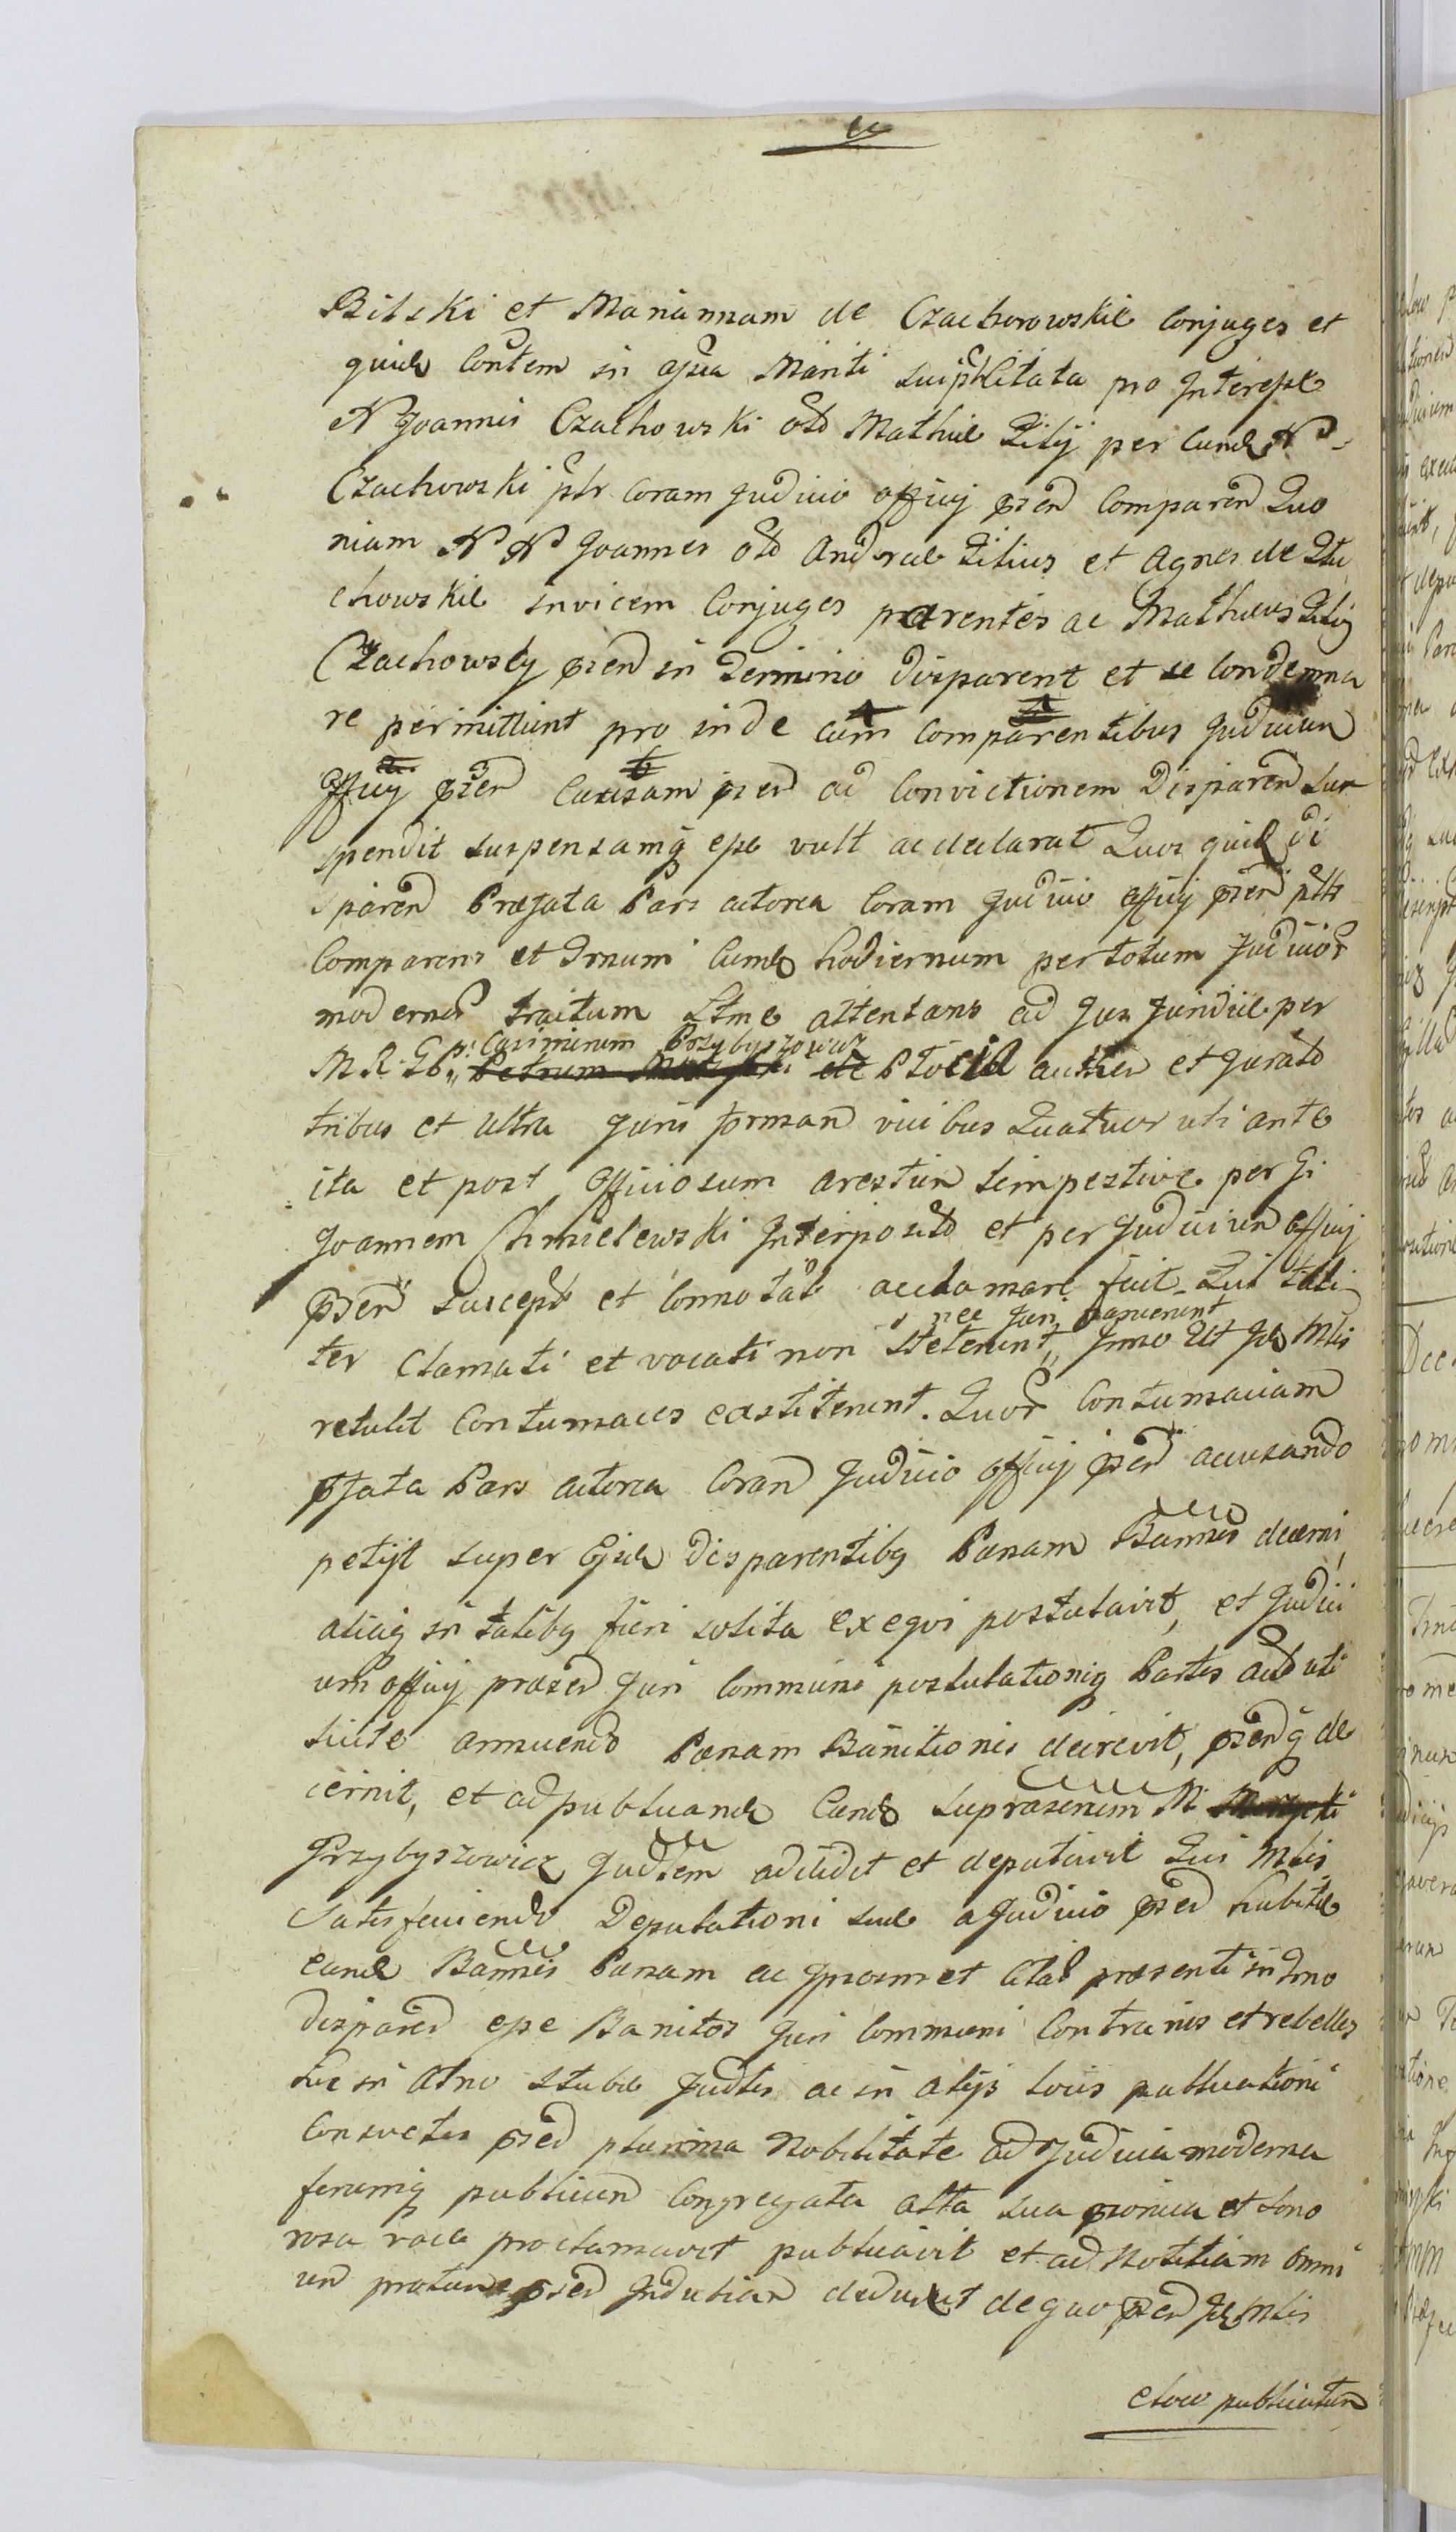 Bilski et Mariannam de Czachorowskie Conjuges et
quide Contem in assa Mariti Suppeditata pro Interesse
N Joannis Czachowski olo Mathie Filij per eund N
Czachowski pltr coram Judicio officij psen Comparen Quo
niam N N Joannes olo Andreae Filius et Agnes de Stu
chowskie invicem Conjuges parentes ac Mathaeus Filig
Czachowscy psen in Termino disparent et se Condemna
re permittunt pro inde cum comparentibus Judicium
Officij psen Causam psen ad Convictionem Disparen Sus
pendit suspensamq esse vult ac declarat Quos quid di
sparen Praefata Pars actorea Coram Judicio officij psen pltr
Comparens et Trnum eund hodiernum per totum Judicior
modernor tractum Ltme attentans ad Jus Juridice per
p: Casimirum Przybyszowicz
M R G P Petrum etc Plocid auther et Jurato
tribus et ultra Juris forman vicibus Quatuor uti ante
ita et post Officiosum arestum tempestive per G:
Joannem Chmielewski Interposito et per Judicium officij
psen Suscept et Connotat acclamari fecit Qui tali
nec Juri paruerunt
ter Clamati et vocati non steterunt, Immo Ut Jd Mlis
retulit Contumaces extiterunt. Quor Contumaciam
pfata Pars actorea Coram Judicio officij psen accusando
petijt super Ejsd disparentibg Paenam Bannis decerni
aliaq in talibg fieri solita exeqvi postulavit, et Judici
um officij praesen Juri Communi postulationiq Partis act uti
Juste annuendo Paenam Banitionis decrevit, psenq de
cernit, et ad publicand Eand Suprascriptum M
Przybyszowicz Judlem addidit et deputavit Qui Mlis
Satisfaciendo Deputationi suae a Judicio psen habitae
eand Bannis Paenam ac Ipsosmet citat praesenti in Trno
disparen esse Banitos Juri Communi Contrarios et rebelles
hic in Atrio Stubae Judlis ac in alijs locis publicationi
Consvetis psen plurima Nobilitate ad Judicia moderna
forumq publicum Congregata alta sua pronica et Sono
rosa voce proclamavit publicavit et ad Notitiam omni
um praetunc psen Indubiam deduxit de quo psen Jd Mlis
eloco publicatum